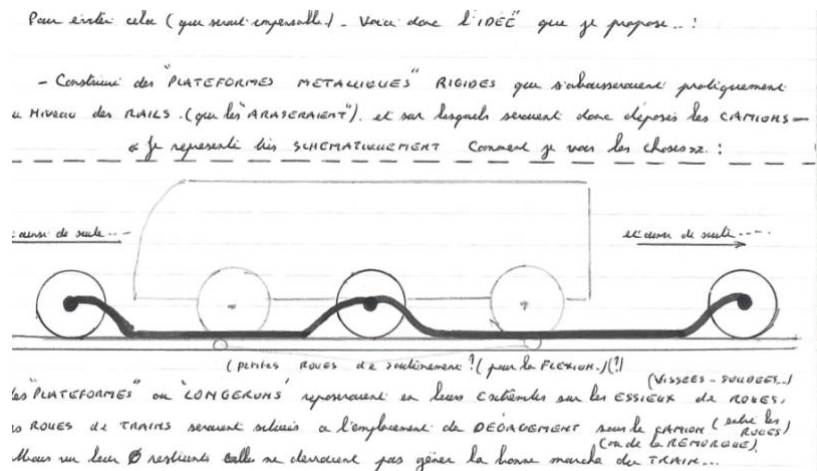 Pour éviter cela (que serait impensable). Voici donc l'IDÉE que je propose... :
- Construire des "PLATEFORMES METALLIQUES" RIGIDES que s'abaisseraient pratiquement
u NIVEAU des RAILS. (que les "ARASERAIENT"). et sur lesquels seraient donc déposés les CAMIONS -
« Je représente très SCHEMATIQUEMENT Comment je vois les choses ». :
ainsi de suite -- -
et ainsi de suite - - - -
(petites ROUES de soutènement ? (pour la FLEXION.) (?)
(VISSEES - SOUDEES..)
es "PLATEFORMES" ou "LONGERONS" reposeraient en leurs extrémités sur les ESSIEUX de ROUES,
s ROUES de TRAINS seraient situées a l'emplacement de DÉGAGEMENT sous le CAMION (entre les ROUES)
(ou de la REMORQUE)
vu leur Ø restreint celles ne devraient pas gêner la bonne marche du TRAIN...